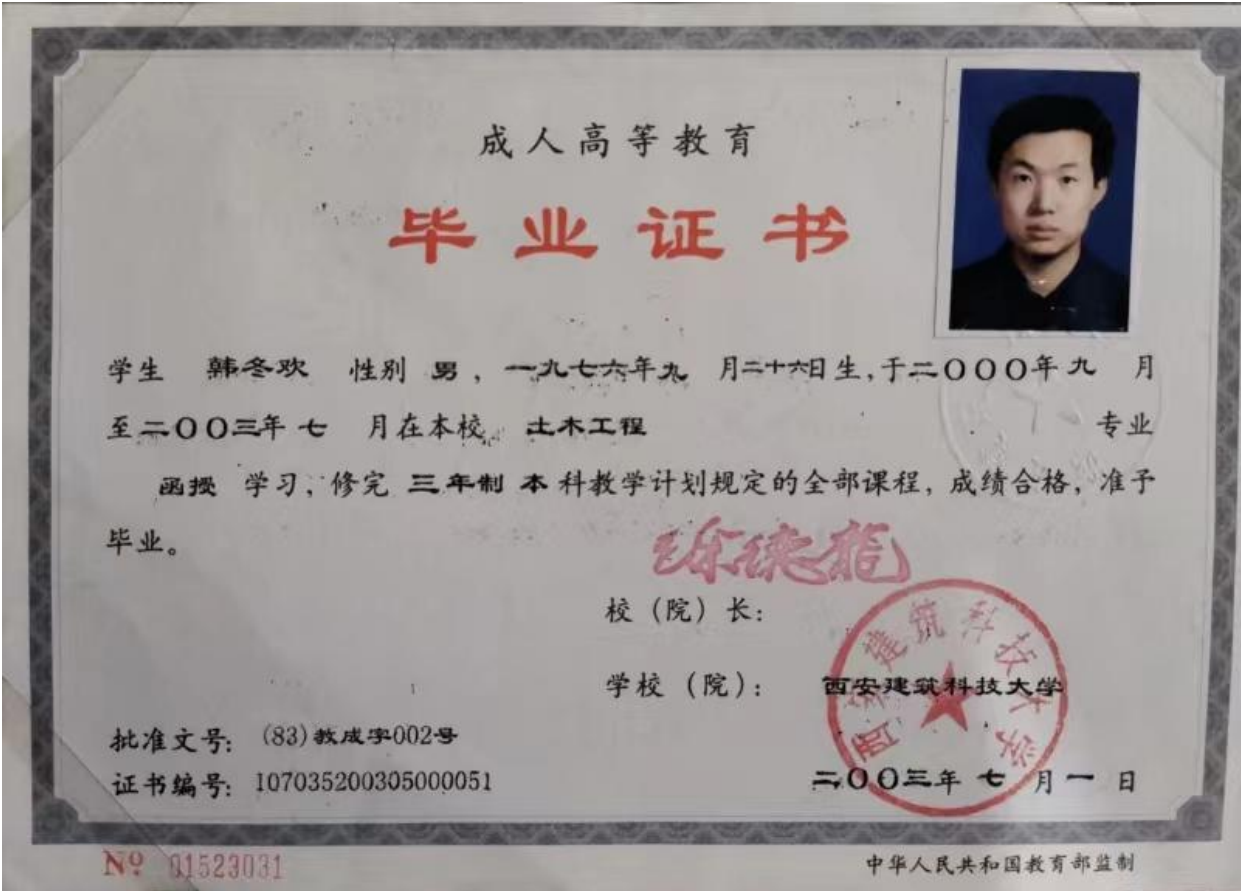 成人高等教育
毕业证书
学生 韩冬欢 性别 男，一九七六年九 月二十六日生，于二〇〇〇年九 月
至二〇〇三年 七 月在本校 土木工程 专业
函授 学习，修完 三年制 本 科教学计划规定的全部课程，成绩合格，准予
毕业。
徐德龙
校（院）长：
学校（院）： 西安建筑科技大学
西安建筑科技大学
批准文号：(83)教成字002号
证书编号：107035200305000051
二〇〇三年 七 月 一 日
Nº 01523031
中华人民共和国教育部监制